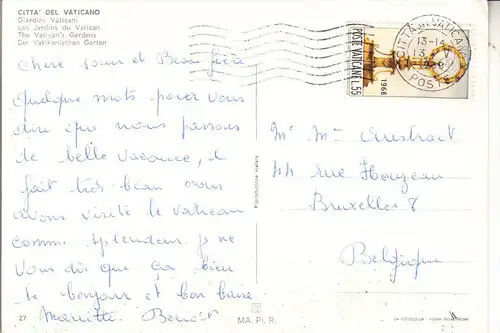 CITTA' DEL VATICANO
Giardini Vaticani
Les Jardins du Vatican
The Vatican's Gardens
Der Vatikanischen Garten
Chere soeur et Beau frère
quelque mots pour vous
dire que nous passons
de belle vacance, il
fait très beau nous
avons visité le vatican
comme splendeur je ne
vous dis que ça bien
le bonjour et bon baisé
Mariette. Benoit
27
MA. PI. R.
Riproduzione vietata
POSTE VATICANE L.55
1968
CITTÀ DEL VATICANO
13-14
POSTE
Mr Mme
44 rue Houzeau
Bruxelles 8
Belgique